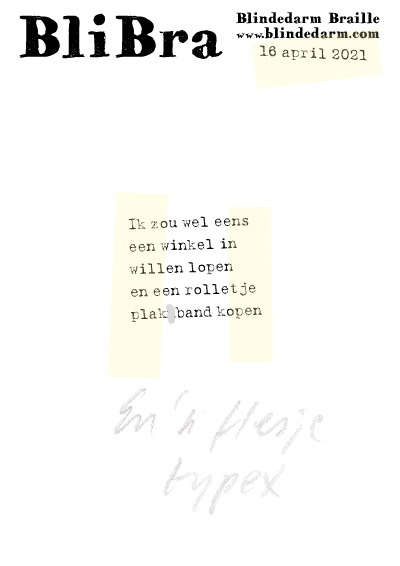 BliBra
Blindedarm Braille
www.blindedarm.com
16 april 2021
Ik zou wel eens
een winkel in
willen lopen
en een rolletje
plakband kopen
En 'n flesje
typex